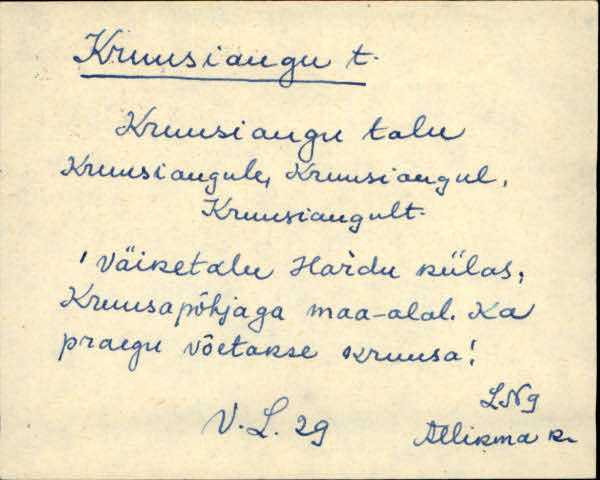 Kruusiaugu t.
Kruusiaugu talu
Kruusiaugule, Kruusiaugul,
Kruusiaugult.
'Väiketalu Haidu külas,
Kruusapõhjaga maa-alal. Ka
praegu võetakse kruusa!
LNg
V.L. 29 Allikma k.